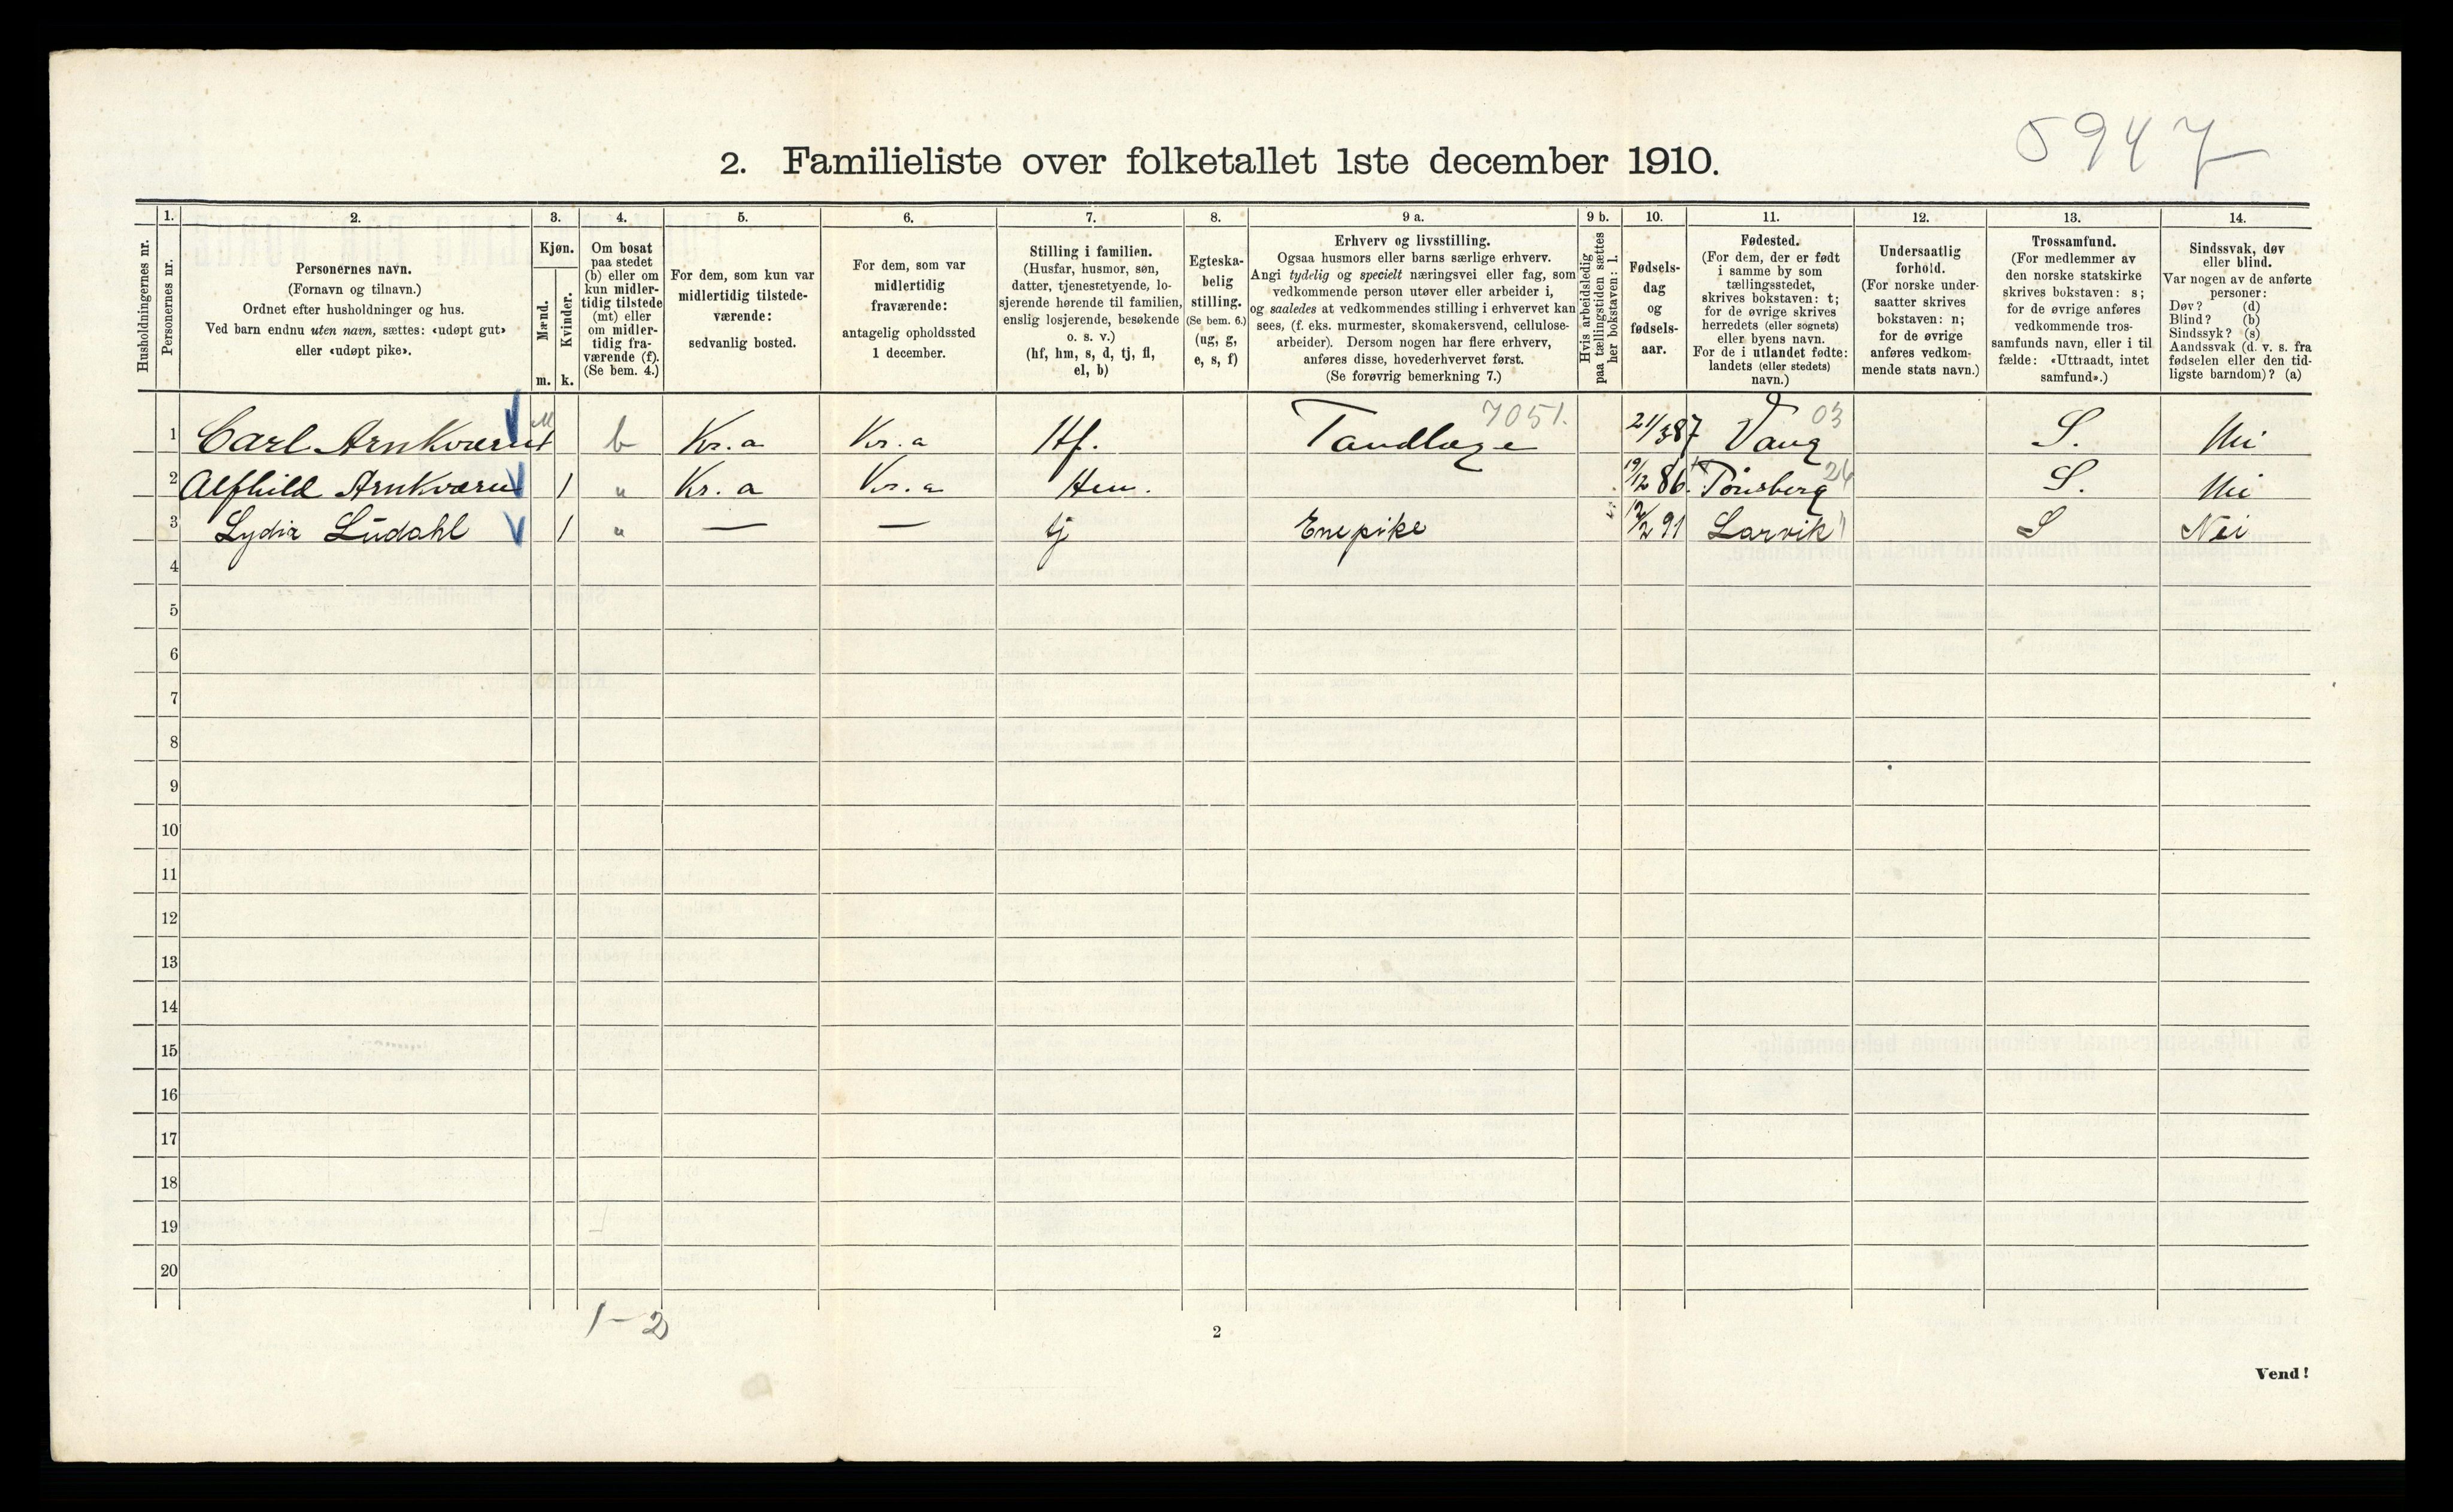 5947
2. Familieliste over folketallet 1ste december 1910.
Husholdningernes nr.
1.
Personernes nr.
2.
Personernes navn.
(Fornavn og tilnavn.)
Ordnet efter husholdninger og hus.
Ved barn endnu uten navn, sættes: «udøpt gut»
eller «udøpt pike».
3.
Kjøn.
Mænd.
Kvinder.
m. k.
4.
Om bosat
paa stedet
(b) eller om
kun midler-
tidig tilstede
(mt) eller
om midler-
tidig fra-
værende (f).
(Se bem. 4.)
5.
For dem, som kun var
midlertidig tilstede-
værende:
sedvanlig bosted.
6.
For dem, som var
midlertidig
fraværende:
antagelig opholdssted
1 december.
7.
Stilling i familien.
(Husfar, husmor, søn,
datter, tjenestetyende, lo-
sjerende hørende til familien,
enslig losjerende, besøkende
o. s. v.)
(hf, hm, s, d, tj, fl,
el, b)
8.
Egteska-
belig
stilling.
(Se bem. 6.)
(ug, g,
e, s, f)
9 a.
Erhverv og livsstilling.
Ogsaa husmors eller barns særlige erhverv.
Angi tydelig og specielt næringsvei eller fag, som
vedkommende person utøver eller arbeider i,
og saaledes at vedkommendes stilling i erhvervet kan
sees, (f. eks. murmester, skomakersvend, cellulose-
arbeider). Dersom nogen har flere erhverv,
anføres disse, hovederhvervet først.
(Se forøvrig bemerkning 7.)
9 b.
Hvis arbeidsledig
paa tællingstiden sættes
her bokstaven: l.
10.
Fødsels-
dag
og
fødsels-
aar.
11.
Fødested.
(For dem, der er født
i samme by som
tællingsstedet,
skrives bokstaven: t;
for de øvrige skrives
herredets (eller sognets)
eller byens navn.
For de i utlandet fødte:
landets (eller stedets)
navn.)
12.
Undersaatlig
forhold.
(For norske under-
saatter skrives
bokstaven: n;
for de øvrige
anføres vedkom-
mende stats navn.)
13.
Trossamfund.
(For medlemmer av
den norske statskirke
skrives bokstaven: s;
for de øvrige anføres
vedkommende tros-
samfunds navn, eller i til
fælde: «Uttraadt, intet
samfund».)
14.
Sindssvak, døv
eller blind.
Var nogen av de anførte
personer:
Døv? (d)
Blind? (b)
Sindssyk? (s)
Aandssvak (d. v. s. fra
fødselen eller den tid-
ligste barndom)? (a)
1 Carl Arnkværn 1 b Kr.a Kr.a Hf. Tandlæge 7051. 21/3 87 Vang 03 S. Nei
2 Alfhild Arnkværn 1 " Kr.a Kr.a Hm. 19/12 86. Tønsberg 26 S. Nei
3 Lydia Lüdahl 1 " — — tj Enepike 12/2 91 Larvik " S Nei
4
5
6
7
8
9
10
11
12
13
14
15
16
17
18
19
20
1-2
2
Vend!